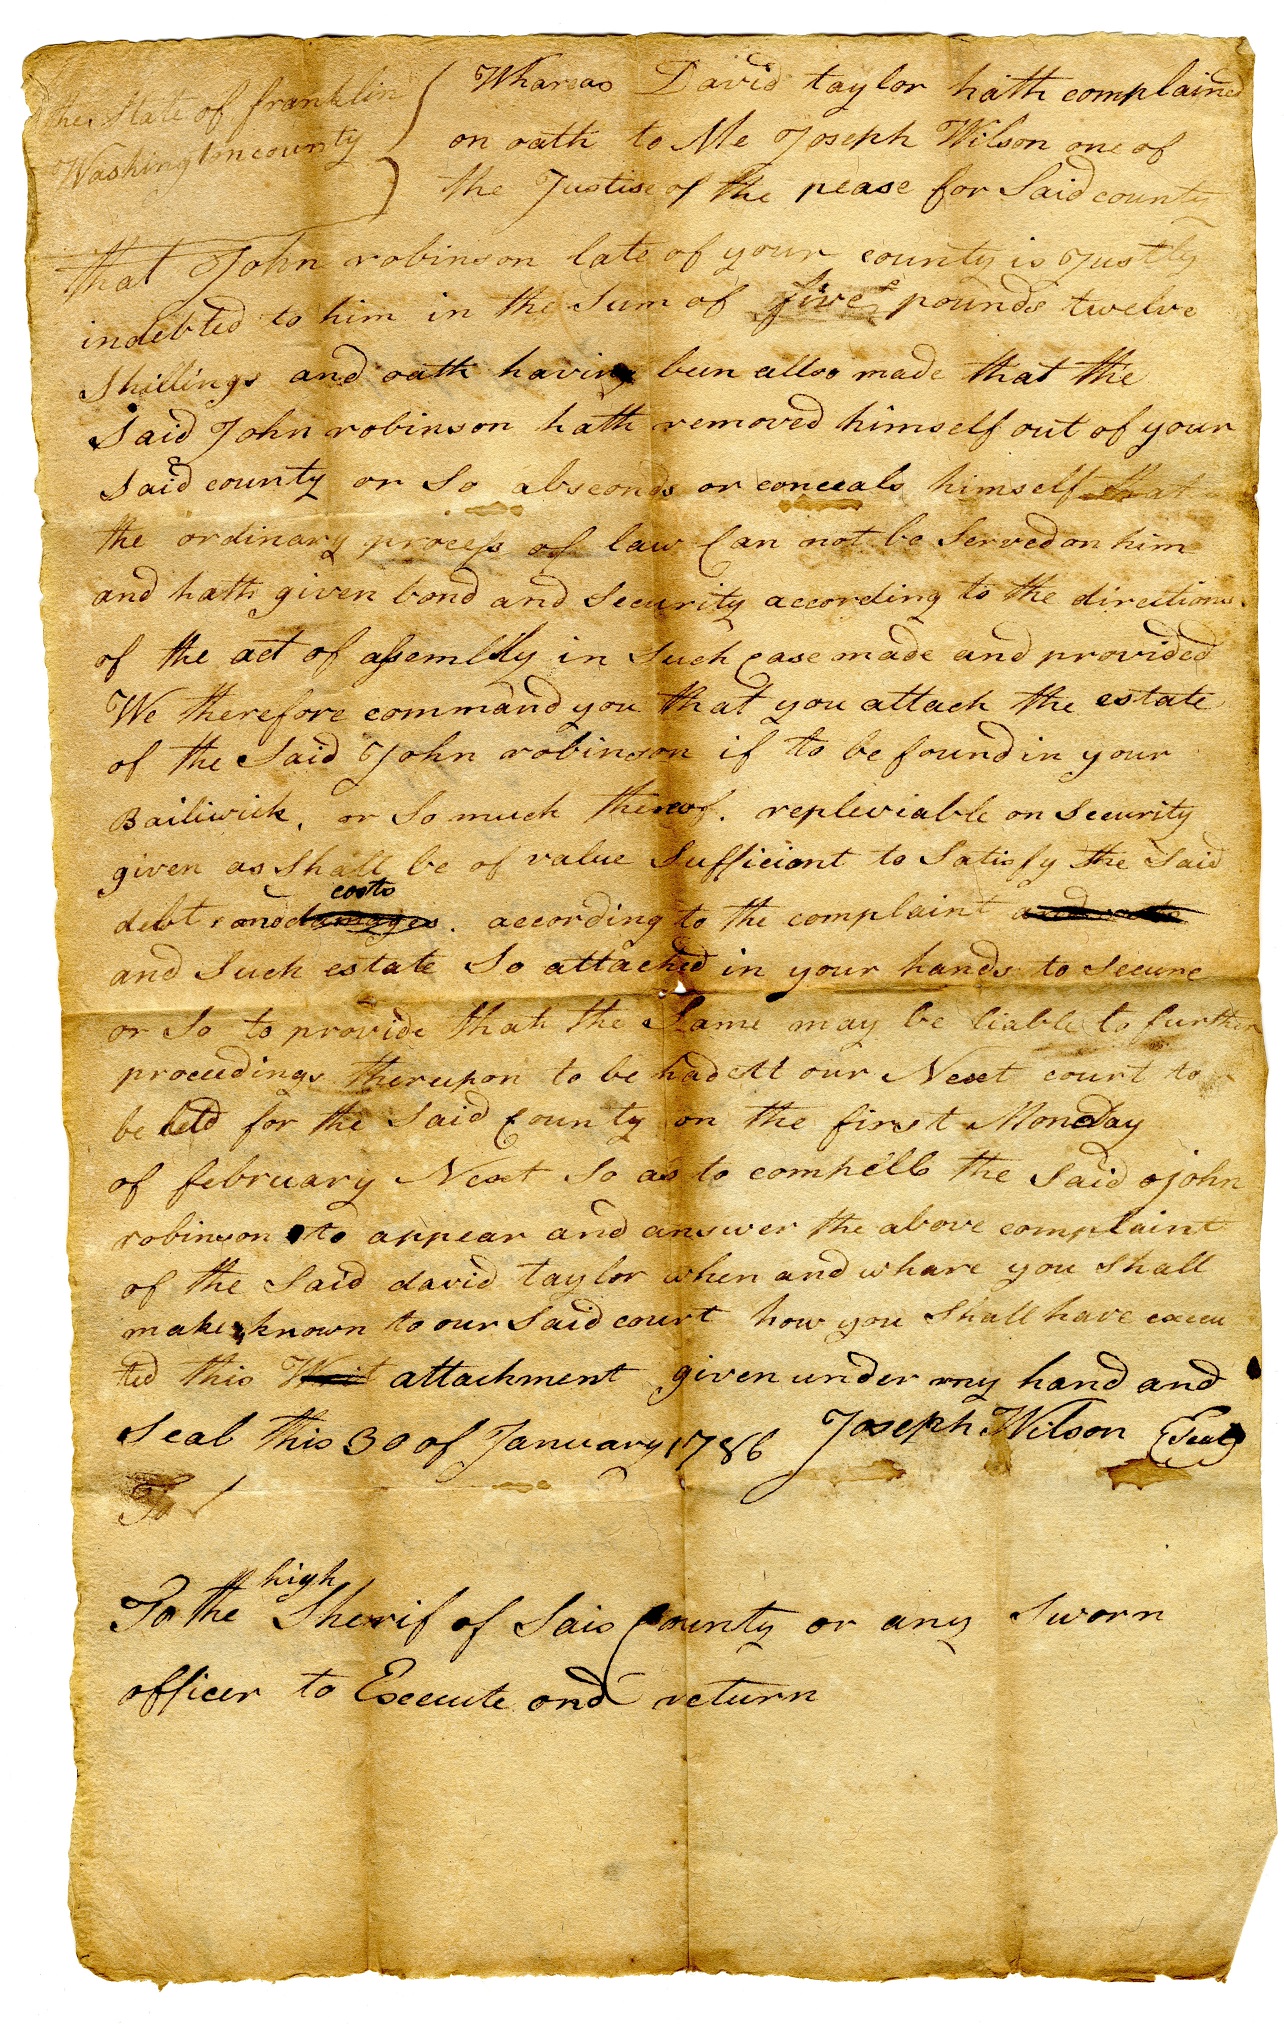 the State of franklin
Washington county
Whareas David taylor hath complained
on oath to Me Joseph Wilson one of
the Justise of the pease for Said county
that John robinson late of your county is Justly
indebted to him in the Sum of five pounds twelve
Shillings and oath having been allso made that the
Said John robinson hath removed himself out of your
Said county or So absconds or conceals himself that
the ordinary process of law Can not be Served on him
and hath given bond and Security according to the directions
of the act of assembly in Such Case made and provided
We therefore command you that you attach the estate
of the Said John robinson if to be found in your
Bailiwick, or So much thereof. repleviable on Security
given as Shall be of value Sufficiant to Satisfy the Said
costs
debt and damages. according to the complaint and costs
and Such estate So attached in your hands to Secure
or So to provide that the Same may be liable to further
proceedings thereupon to be had att our Next court to
be held for the Said County on the first Monday
of february Next So as to compell the Said John
robinson to appear and answer the above complaint
of the Said david taylor when and whare you Shall
make known to our Said court how you Shall have execu
ted this Writ attachment given under my hand and
Seal this 30 of January 1786 Joseph Wilson Seal
To
high
To the Sherif of Said County or any Sworn
officer to Execute and return